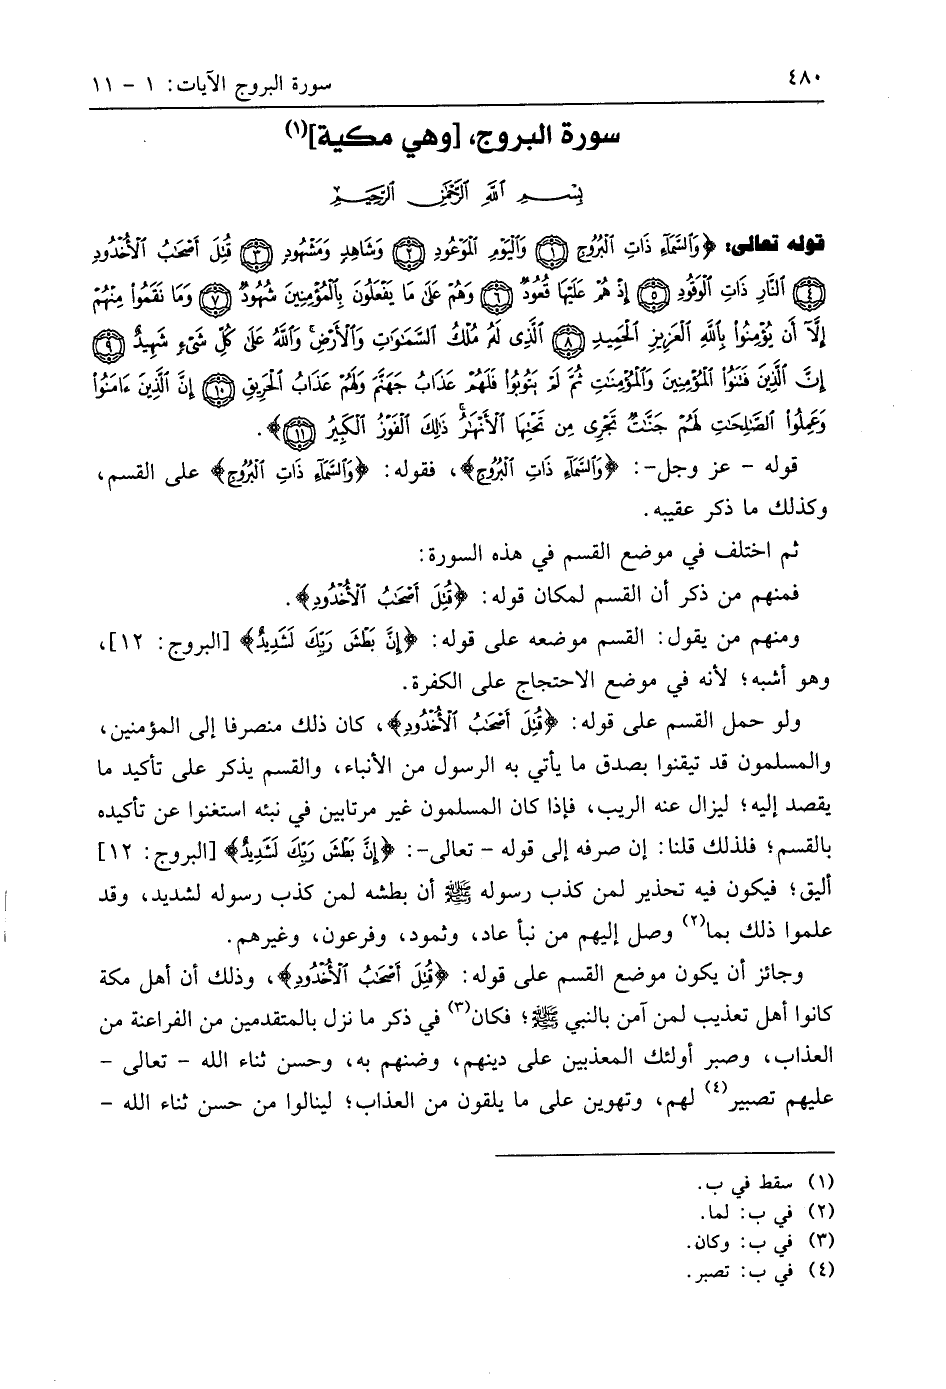 ٤٨٠
سورة البروج الآيات: ١ - ١١
سورة البروج، [وهي مكية](١)
بِسْمِ ٱللَّهِ ٱلرَّحْمَٰنِ ٱلرَّحِيمِ
قوله تعالى: ﴿وَٱلسَّمَآءِ ذَاتِ ٱلْبُرُوجِ ١ وَٱلْيَوْمِ ٱلْمَوْعُودِ ٢ وَشَاهِدٍ وَمَشْهُودٍ ٣ قُتِلَ أَصْحَٰبُ ٱلْأُخْدُودِ
٤ ٱلنَّارِ ذَاتِ ٱلْوَقُودِ ٥ إِذْ هُمْ عَلَيْهَا قُعُودٌ ٦ وَهُمْ عَلَىٰ مَا يَفْعَلُونَ بِٱلْمُؤْمِنِينَ شُهُودٌ ٧ وَمَا نَقَمُوا۟ مِنْهُمْ
إِلَّآ أَن يُؤْمِنُوا۟ بِٱللَّهِ ٱلْعَزِيزِ ٱلْحَمِيدِ ٨ ٱلَّذِى لَهُۥ مُلْكُ ٱلسَّمَٰوَٰتِ وَٱلْأَرْضِ ۚ وَٱللَّهُ عَلَىٰ كُلِّ شَىْءٍ شَهِيدٌ ٩
إِنَّ ٱلَّذِينَ فَتَنُوا۟ ٱلْمُؤْمِنِينَ وَٱلْمُؤْمِنَٰتِ ثُمَّ لَمْ يَتُوبُوا۟ فَلَهُمْ عَذَابُ جَهَنَّمَ وَلَهُمْ عَذَابُ ٱلْحَرِيقِ ١٠ إِنَّ ٱلَّذِينَ ءَامَنُوا۟
وَعَمِلُوا۟ ٱلصَّٰلِحَٰتِ لَهُمْ جَنَّٰتٌ تَجْرِى مِن تَحْتِهَا ٱلْأَنْهَٰرُ ۚ ذَٰلِكَ ٱلْفَوْزُ ٱلْكَبِيرُ ١١﴾.
قوله - عز وجل-: ﴿وَٱلسَّمَآءِ ذَاتِ ٱلْبُرُوجِ﴾، فقوله: ﴿وَٱلسَّمَآءِ ذَاتِ ٱلْبُرُوجِ﴾ على القسم،
وكذلك ما ذكر عقيبه.
ثم اختلف في موضع القسم في هذه السورة:
فمنهم من ذكر أن القسم لمكان قوله: ﴿قُتِلَ أَصْحَٰبُ ٱلْأُخْدُودِ﴾.
ومنهم من يقول: القسم موضعه على قوله: ﴿إِنَّ بَطْشَ رَبِّكَ لَشَدِيدٌ﴾ [البروج: ١٢]،
وهو أشبه؛ لأنه في موضع الاحتجاج على الكفرة.
ولو حمل القسم على قوله: ﴿قُتِلَ أَصْحَٰبُ ٱلْأُخْدُودِ﴾، كان ذلك منصرفا إلى المؤمنين،
والمسلمون قد تيقنوا بصدق ما يأتي به الرسول من الأنباء، والقسم يذكر على تأكيد ما
يقصد إليه؛ ليزال عنه الريب، فإذا كان المسلمون غير مرتابين في نبئه استغنوا عن تأكيده
بالقسم؛ فلذلك قلنا: إن صرفه إلى قوله - تعالى-: ﴿إِنَّ بَطْشَ رَبِّكَ لَشَدِيدٌ﴾ [البروج: ١٢]
أليق؛ فيكون فيه تحذير لمن كذب رسوله ﷺ أن بطشه لمن كذب رسوله لشديد، وقد
علموا ذلك بما(٢) وصل إليهم من نبأ عاد، وثمود، وفرعون، وغيرهم.
وجائز أن يكون موضع القسم على قوله: ﴿قُتِلَ أَصْحَٰبُ ٱلْأُخْدُودِ﴾، وذلك أن أهل مكة
كانوا أهل تعذيب لمن آمن بالنبي ﷺ؛ فكان(٣) في ذكر ما نزل بالمتقدمين من الفراعنة من
العذاب، وصبر أولئك المعذبين على دينهم، وضنهم به، وحسن ثناء الله - تعالى -
عليهم تصبير(٤) لهم، وتهوين على ما يلقون من العذاب؛ لينالوا من حسن ثناء الله -
(١) سقط في ب.
(٢) في ب: لما.
(٣) في ب: وكان.
(٤) في ب: تصبر.